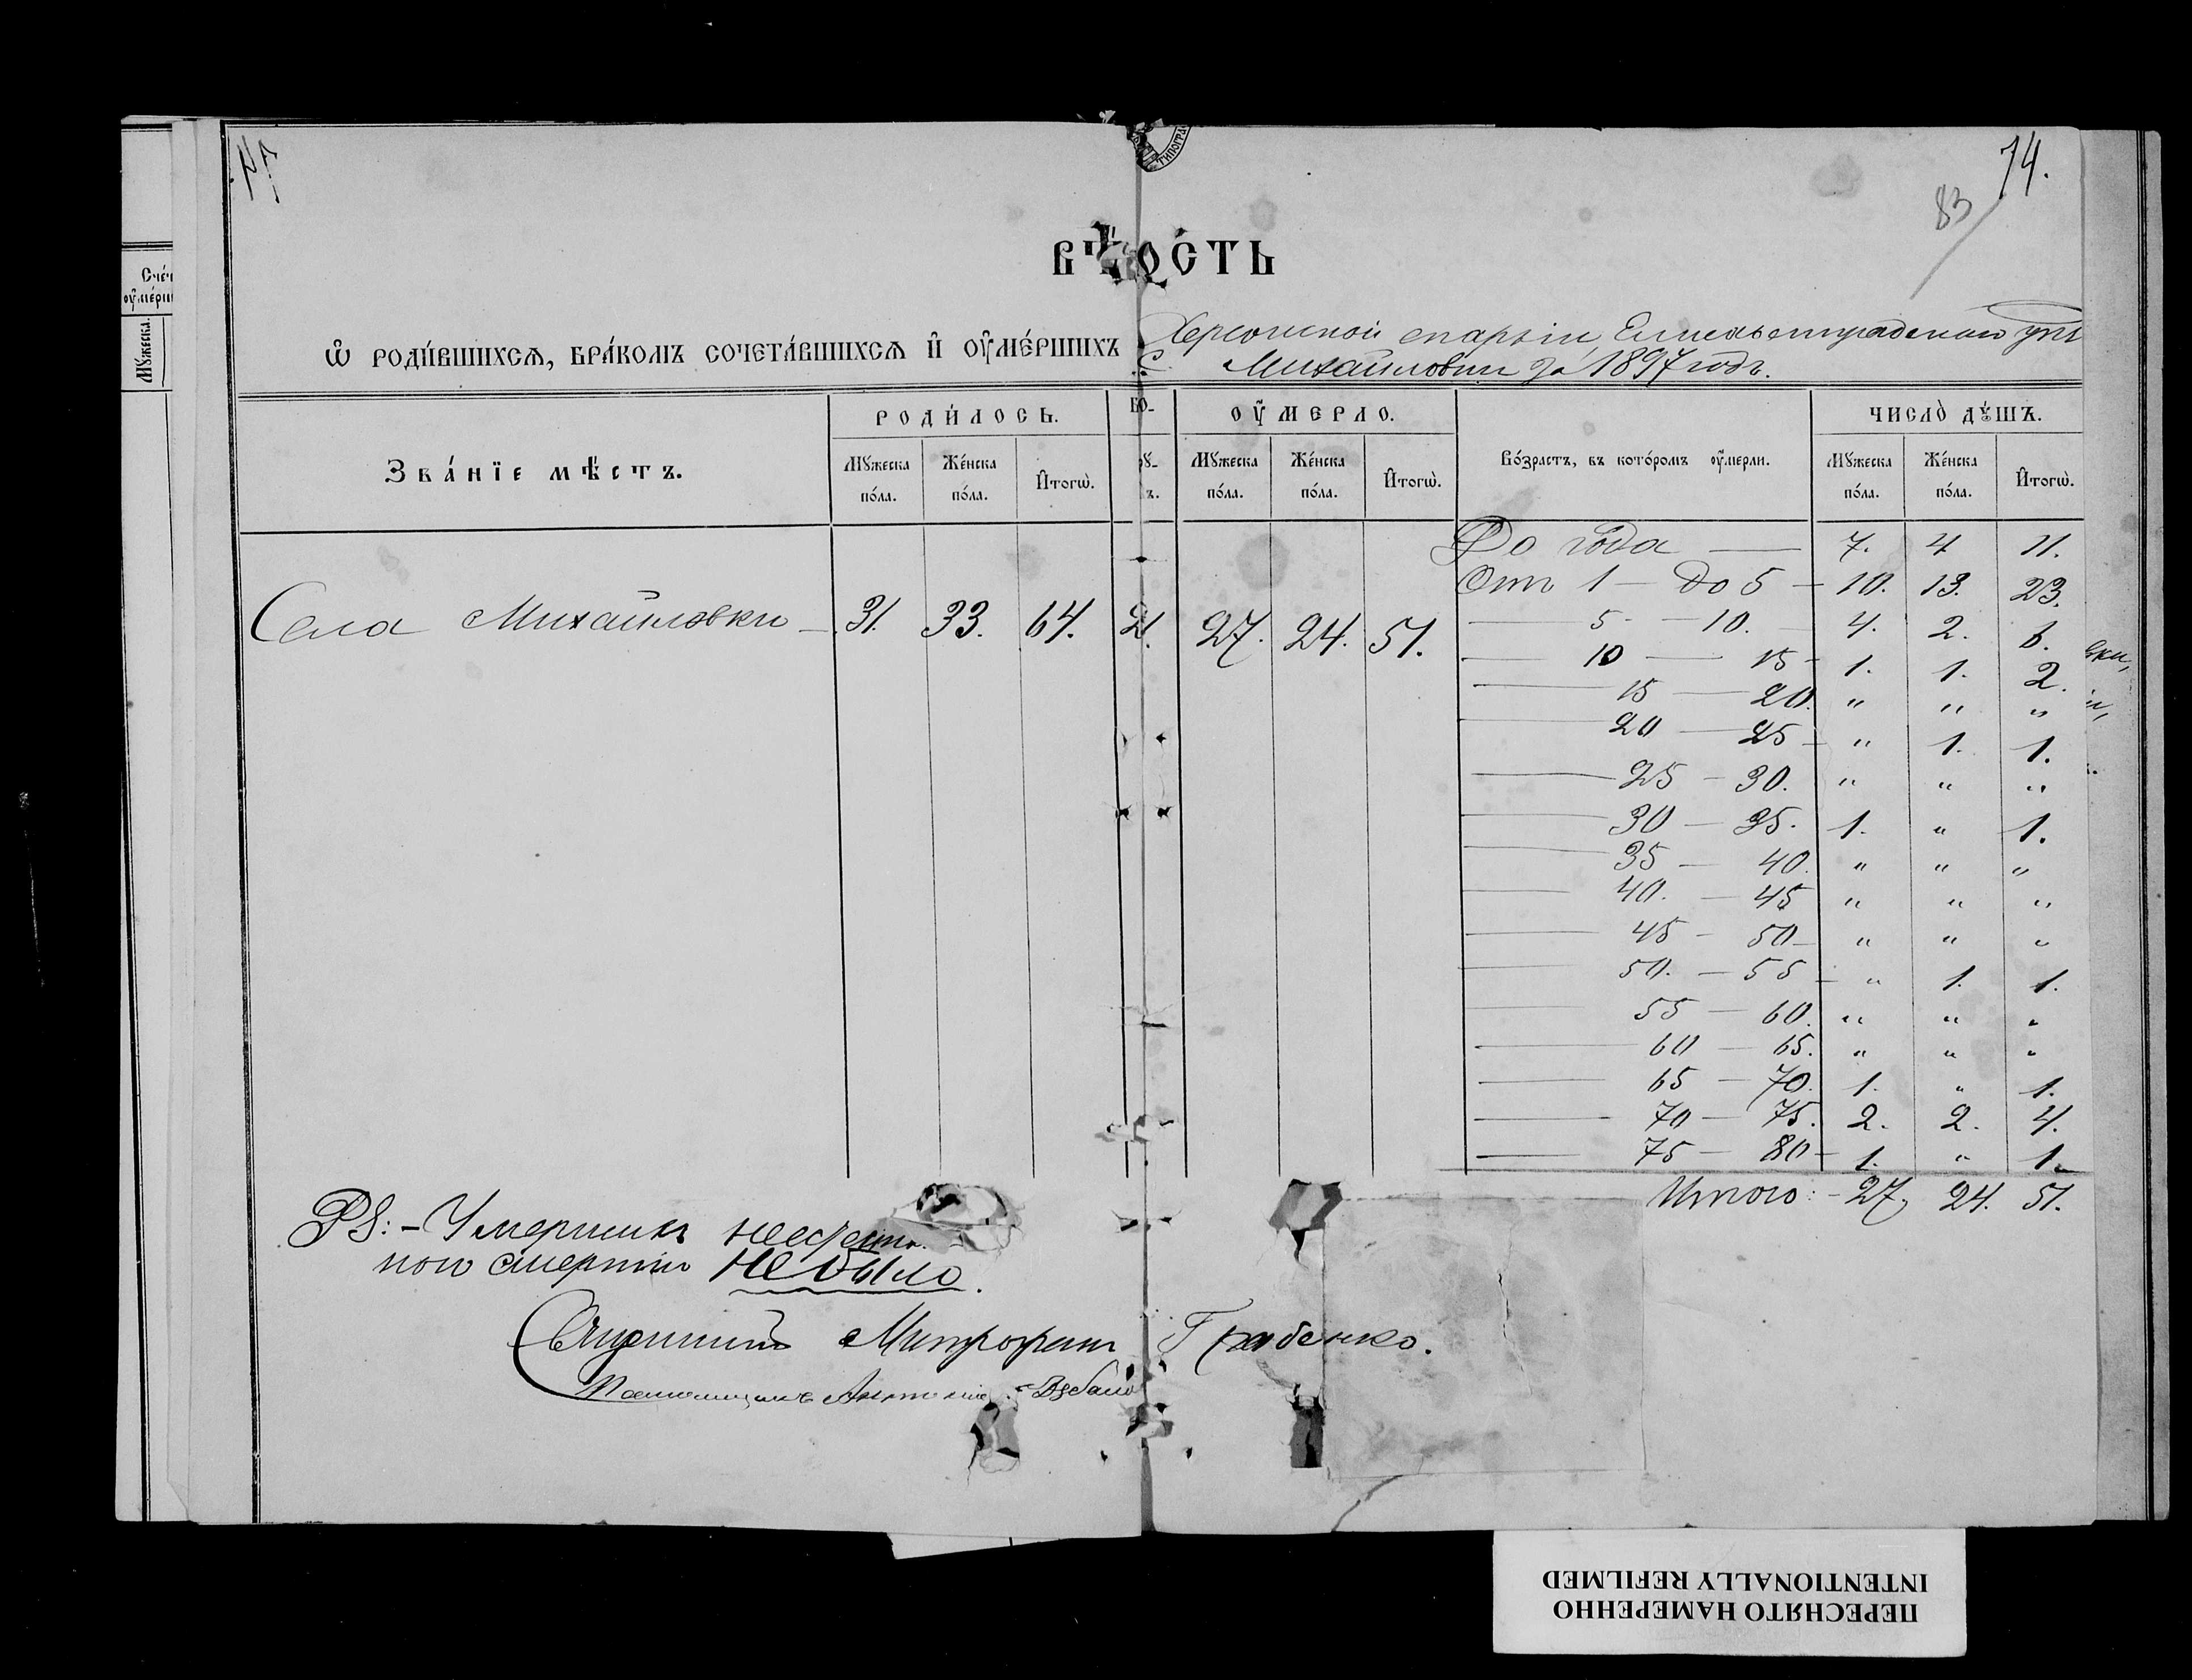 74.
83
ВѢДОСТЬ
Ѡ РОДИ́ВШИХСѦ, БРА́КОМЪ СОЧЕТА́ВШИХСѦ И҆ ОУ҆МЕ́РШИХЪ Херсонской епархіи, Елисаветградскаго
С. Михайловки за 1897 годъ.
Зва́нїе мѣ́стъ.
РОДИ́ЛОСЬ.
Мꙋжеска по́ла.
Же́нска по́ла.
И҆тогѡ̀.
ОУ҆МЕРЛО.
Мꙋжеска по́ла.
Же́нска по́ла.
И҆тогѡ̀.
Во́зрастъ, въ кото́ромъ оу҆мерли.
ЧИСЛО̀ ДꙊ́ШЪ.
Мꙋжеска по́ла.
Же́нска по́ла.
И҆тогѡ̀.
Села Михайловки — 31. 33. 64. 21. 27. 24. 51.
До года — 7. 4 11.
Отъ 1 — до 5 — 10. 13. 23.
— 5 — 10. — 4. 2. 6.
— 10 — 15 — 1. 1. 2.
— 15 — 20. „ „ „
— 20 — 25 — „ 1. 1.
— 25 — 30. „ „ „
— 30 — 35. 1. „ 1.
— 35 — 40. „ „ „
— 40. — 45 „ „ „
— 45 — 50 — „ „ „
— 50. — 55 — „ 1. 1.
— 55 — 60. „ „ „
— 60 — 65. „ „ „
— 65 — 70. 1. „ 1.
— 70 — 75. 2. 2. 4.
— 75 — 80 — 1. „ 1.
Итого: — 27, 24. 51.
PS: — Умершихъ неестест-
ною смертію не было.
Священникъ Митрофанъ Грабенко.
Антоній
ПЕРЕСНЯТО НАМЕРЕННО
INTENTIONALLY REFILMED